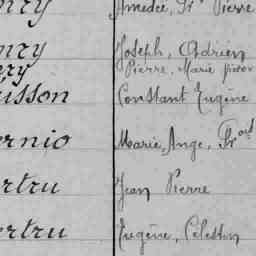 onry Amedée, Fr Pierre
onry Joseph, Adrien
ery Pierre, Marie
uisson Constant Eugène
ernio Marie, Ange, Frond
ertru Jean Pierre
ertru Eugène, Célestin